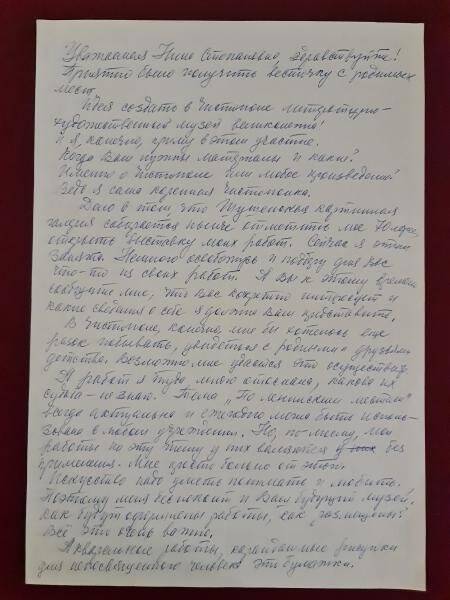 Уважаемая Нина Степановна, здравствуйте!
Приятно было получить весточку с родимых
мест.
Идея создать в Чистополе литературно-
художественный музей великолепна!
и я, конечно, приму в этом участие.
Когда Вам нужны материалы и какие?
Именно о Чистополе или любое произведение?
Ведь я сама коренная чистополка.
Дело в том, что Шушенская картинная
галерея собирается нынче отметить мне
открыть выставку моих работ. Сейчас я этим
занята. Немного освобожусь и подберу для Вас
что-то из своих работ. А Вы к этому времени
сообщите мне, что Вас конкретно интересует и
какие сведения о себе я должна Вам представить.
В Чистополе, конечно, мне бы хотелось еще
разок побывать, увидеться с родными и друзьями
детства. Возможно мне удастся это осуществить.
работ я туда много отослала, какова их
судьба - не знаю. Тема "По ленинским местам"
всегда актуальна и ежегодно может быть исполь-
зована в любом учреждении. Но, по-моему, мои
работы на эту тему у них валяются без
применения. Мне просто больно от этого.
Искусство надо уметь понимать и любить.
Поэтому меня беспокоит и Ваш будущий музей:
как будут оформлены работы, как размещены?
Всё это очень важно.
Акварельные работы, карандашные рисунки
для непосвященного человека это бумажки.